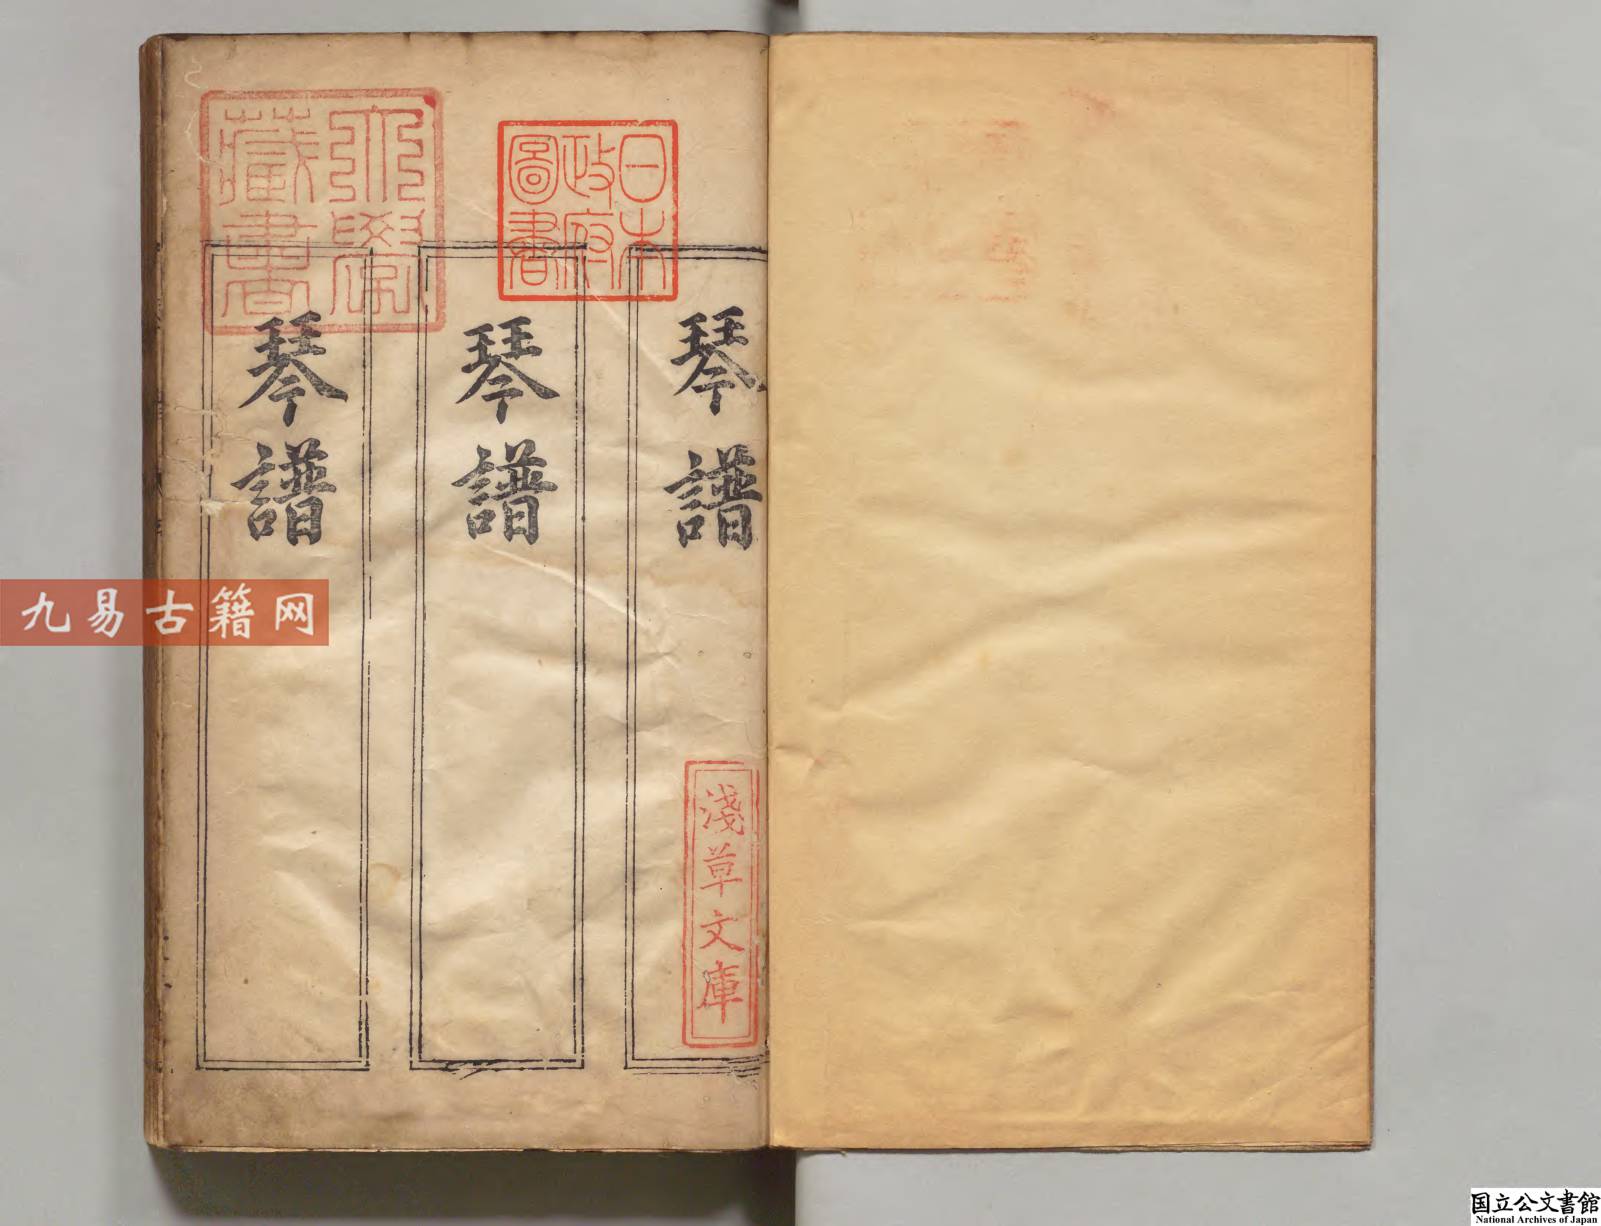 日本
政府
圖書
大學
藏書
琴譜
琴譜
琴譜
淺草文庫
九易古籍网
国立公文書館
National Archives of Japan